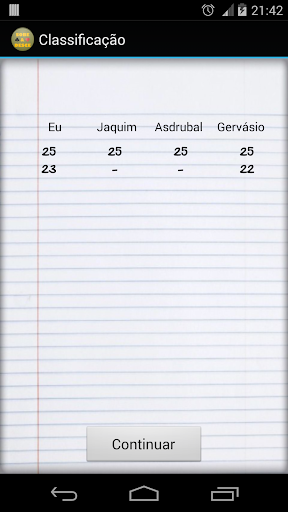 21:42
Classificação
Eu Jaquim Asdrubal Gervásio
25 25 25 25
23 - - 22
Continuar